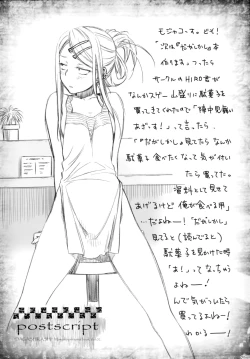 モジャコっす。ども!
「次は『だがしかし』本
作ります。」つったら
サークルのHIRO君が
なんかスゲー山盛りに駄菓子を
買ってきてくれたので「陣中見舞い
あざーす!」って言ったら
「『だがしかし』見てたらなんか
駄菓子食べたくなって気が付い
たら買ってた。
資料として見せて
あげるけど俺が食べる用」
…だよねー!「だがしかし」
見てると(読んでると)
駄菓子を見かけた時
「あ!」ってなっちゃう
よねー!
んで気がついたら
買ってるよねー!
わかるー!
postscript